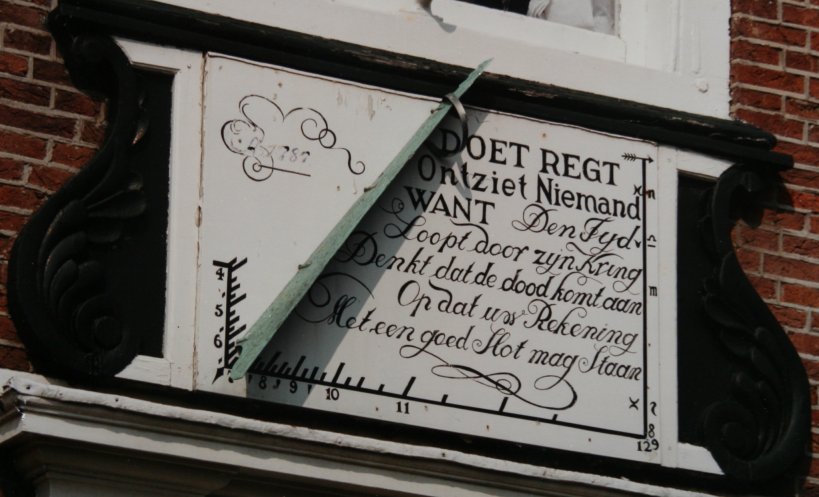 1787
DOET REGT
Ontziet Niemand
WANT Den Tyd
Loopt door zyn Kring
Denkt dat de dood komt aan
Op dat uw Rekening
Met een goed Slot mag Staan
4
5
6
8 9 10 11 12